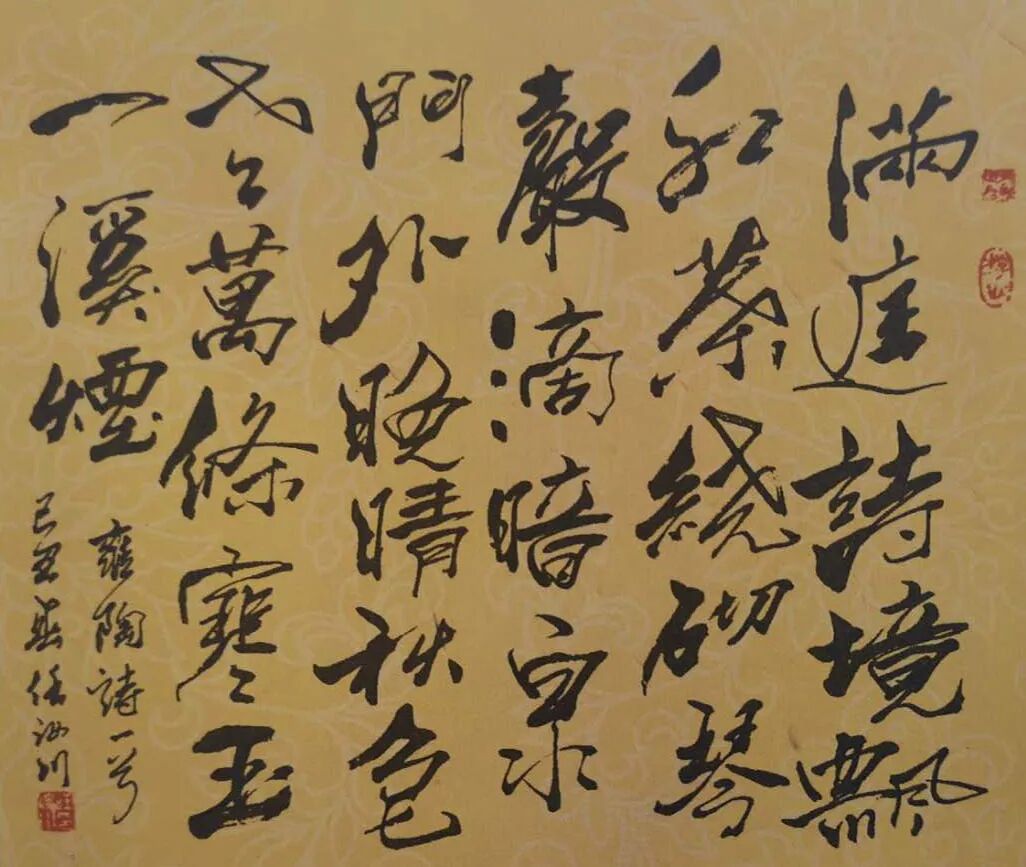 滿庭詩境飄
紅葉繞砌琴
聲滴暗泉
門外晚晴秋色
老萬條寒玉
一溪煙
雍陶詩一首
己丑春任汝川